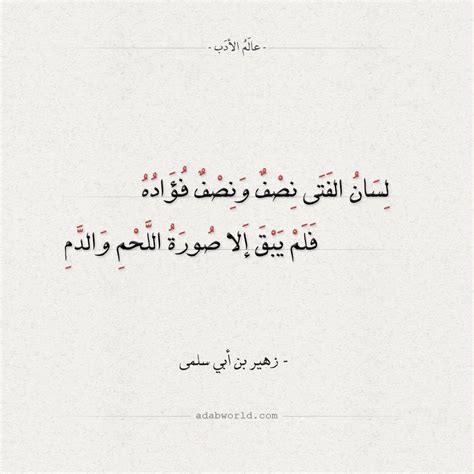 - عالَمُ الأدَب -
لِسَانُ الفَتَى نِصْفٌ وَنِصْفٌ فُؤَادُهُ
فَلَمْ يَبْقَ إَلا صُورَةُ اللَّحْمِ وَالدَّمِ
- زهير بن أبي سلمى
adabworld.com